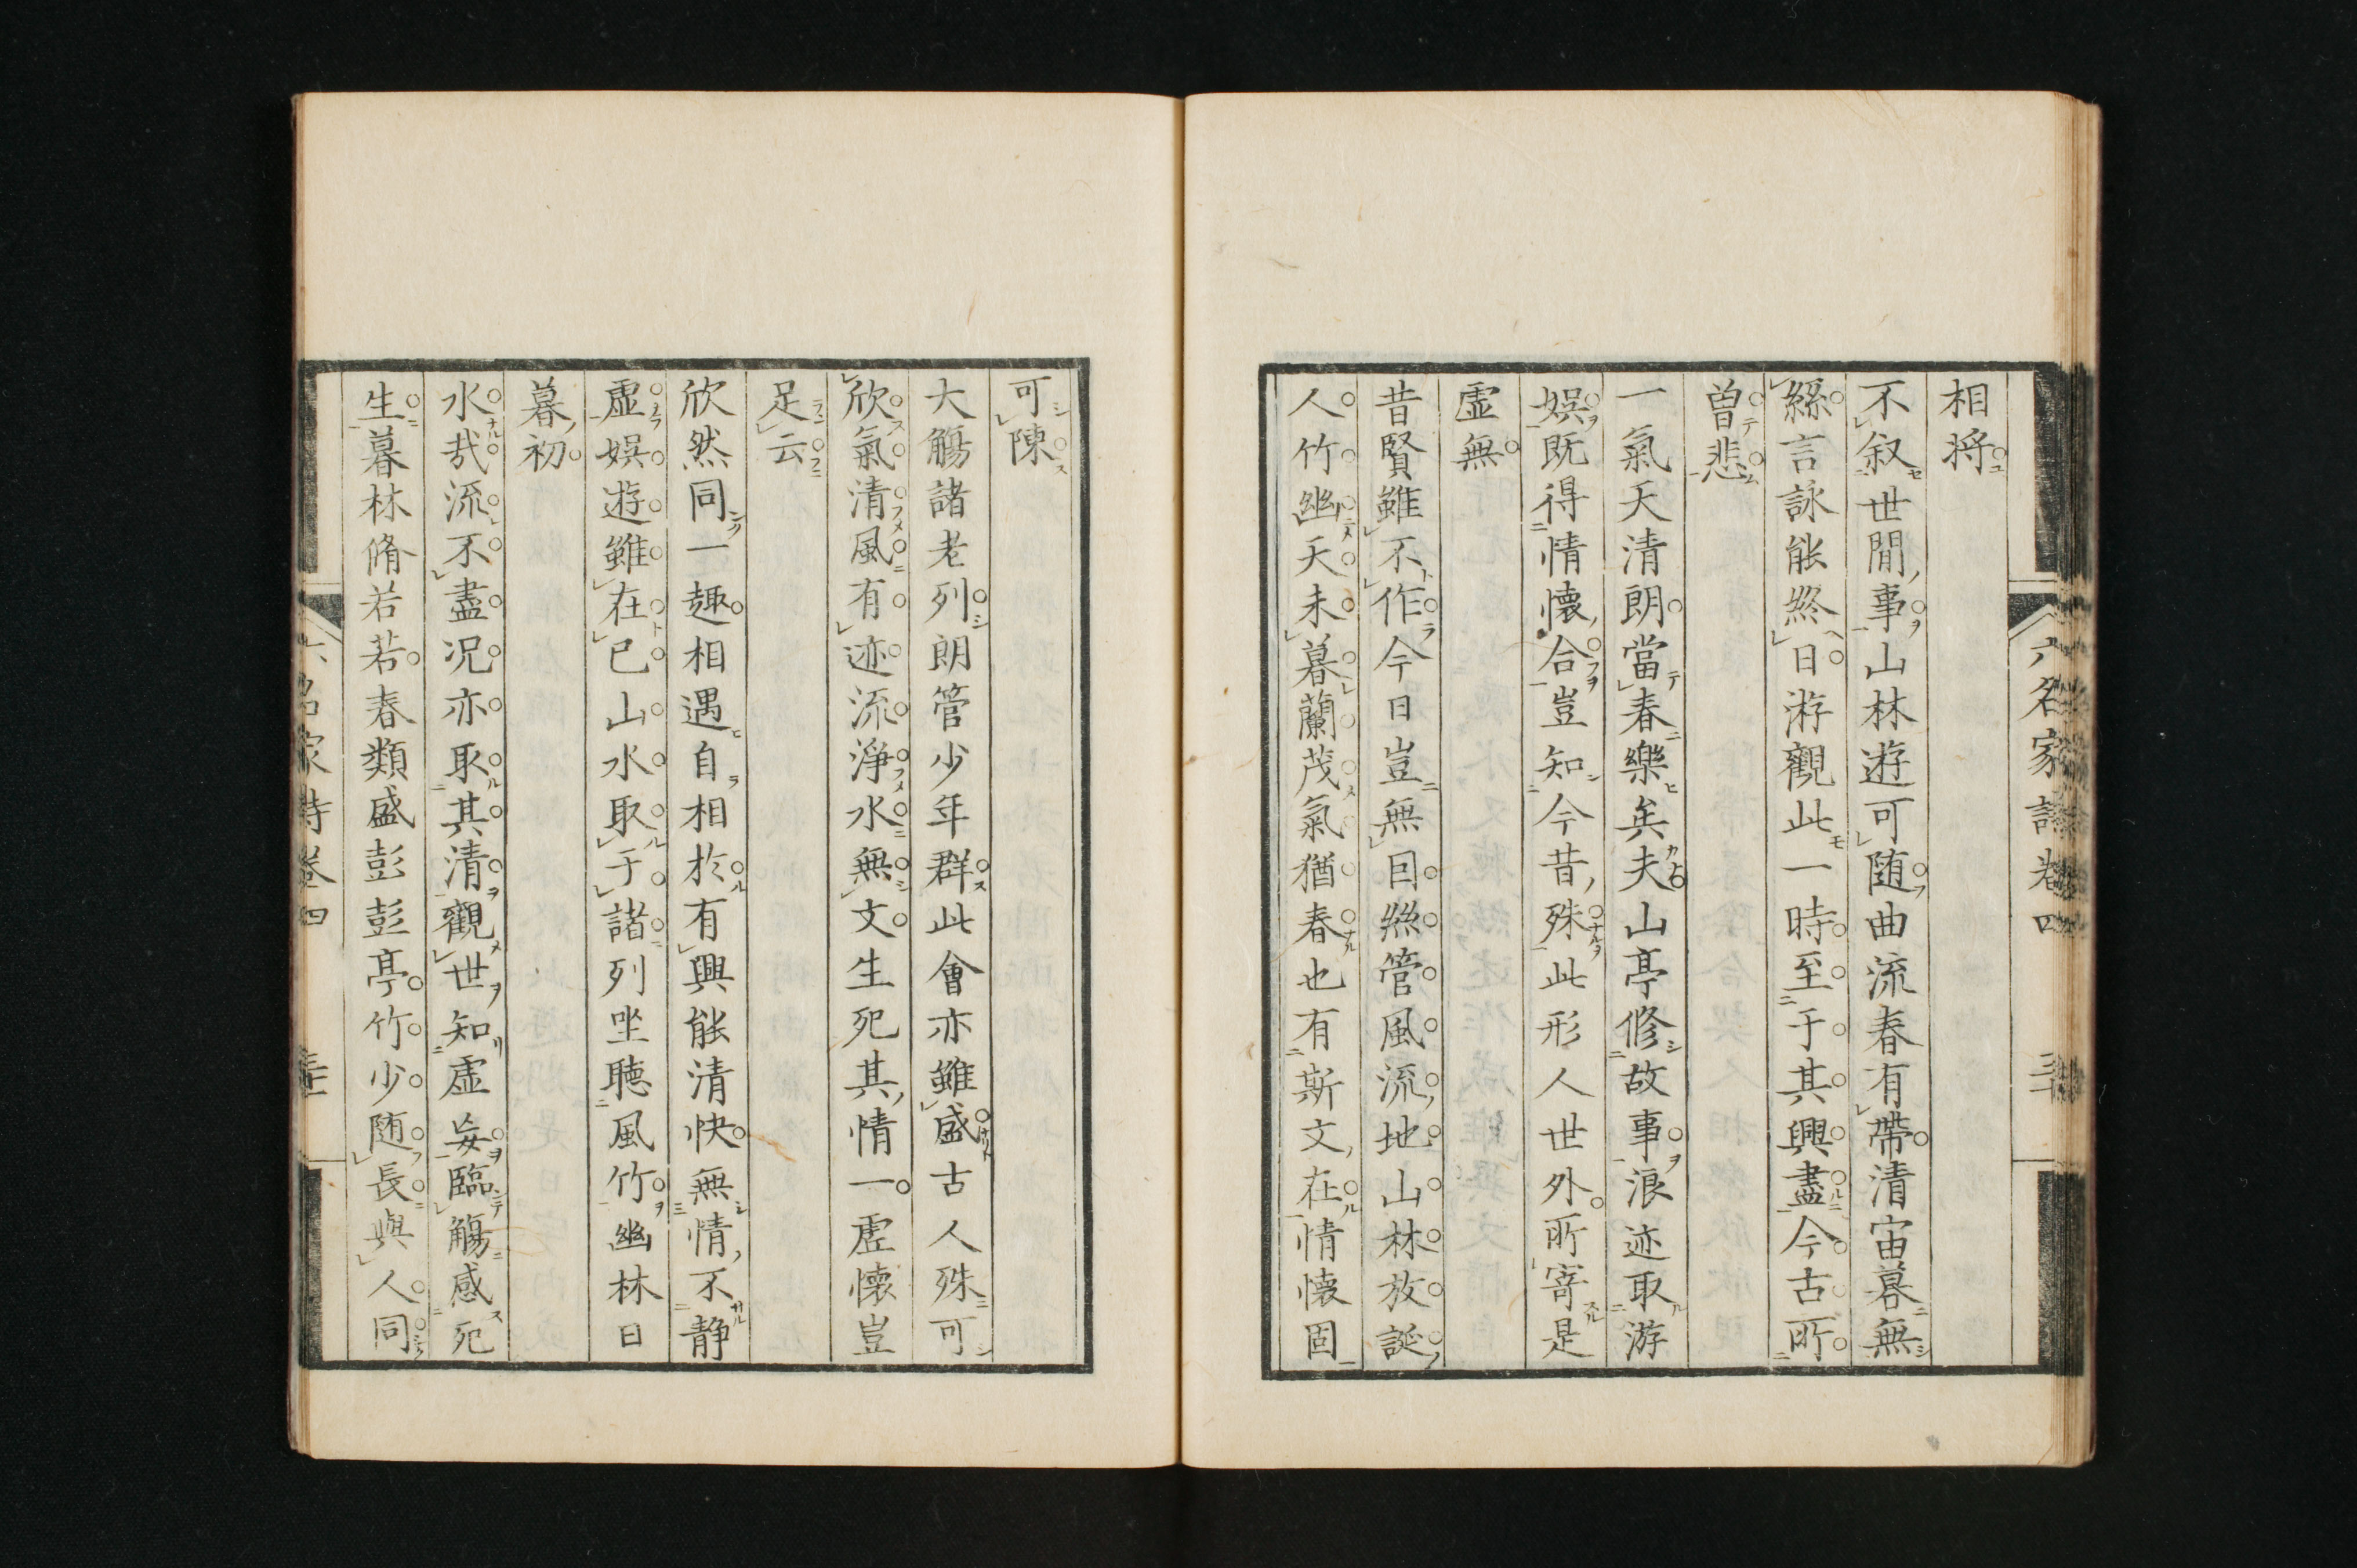 六名家詩卷四
三十
相将
不叙世間事山林遊可随曲流春有帶清宙暮無
絲言詠能終日游觀此一時至于其興盡今古所
曽悲
一氣天清朗當春樂矣夫山亭修故事浪迹取游
娯既得情懐合豈知今昔殊此形人世外所寄是
虚無
昔賢雖不作今日豈無目絲管風流地山林放誕
人竹幽天未暮蘭茂氣猶春也有斯文在情懐固
可陳
大觴諸老列朗管少年群此會亦雖盛古人殊可
欣氣清風有迹流淨水無文生死其情一虚懐豈
足云
欣然同一趣相遇自相於有興能清快無情不静
虚娯遊雖在已山水取于諸列坐聴風竹幽林日
暮初
水哉流不盡况亦取其清觀世知虚妄臨觴感死
生暮林脩若若春類盛彭彭亭竹少随長與人同
六名家詩卷四